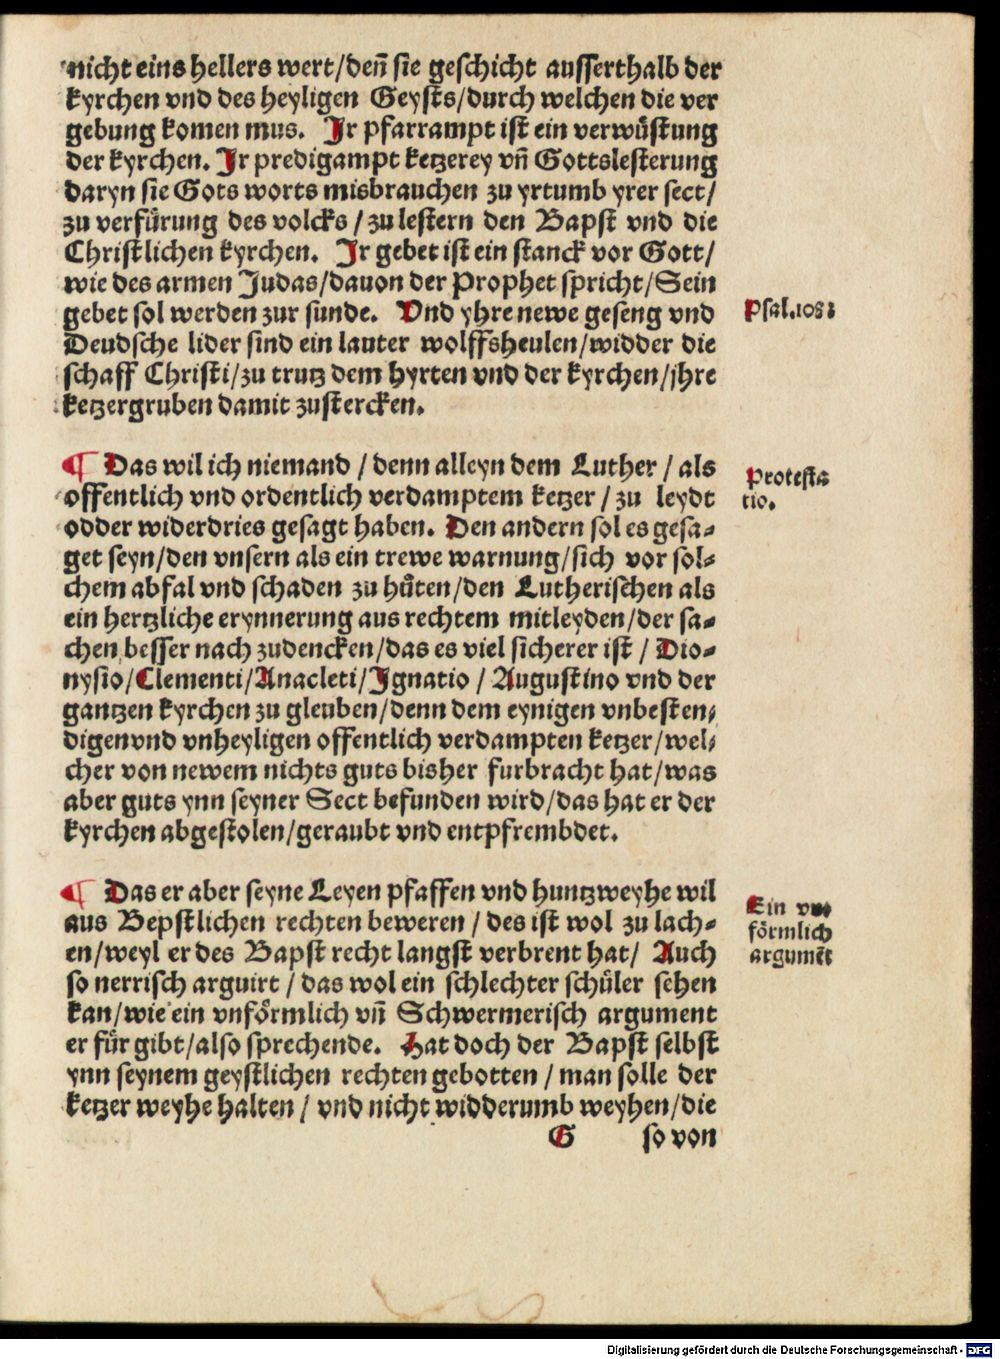 nicht eins hellers wert/den̄ sie geschicht ausserthalb der
kyrchen vnd des heyligen Geysts/durch welchen die ver
gebung komen mus. Ir pfarrampt ist ein verwuͤstung
der kyrchen. Ir predigampt ketzerey vn̄ Gottslesterung
daryn sie Gots worts misbrauchen zu yrtumb yrer sect/
zu verfuͤrung des volcks/zu lestern den Bapst vnd die
Christlichen kyrchen. Ir gebet ist ein stanck vor Gott/
wie des armen Judas/dauon der Prophet spricht/Sein
gebet sol werden zur sunde. Vnd yhre newe geseng vnd
Deudsche lider sind ein lauter wolffsheulen/widder die
schaff Christi/zu trutz dem hyrten vnd der kyrchen/jhre
ketzergruben damit zustercken.
Psal.108:
¶ Das wil ich niemand/denn alleyn dem Luther/als
offentlich vnd ordentlich verdamptem ketzer/zu leydt
odder widerdries gesagt haben. Den andern sol es gesa⸗
get seyn/den vnsern als ein trewe warnung/sich vor sol⸗
chem abfal vnd schaden zu huͤten/den Lutherischen als
ein hertzliche erynnerung aus rechtem mitleyden/der sa⸗
chen besser nach zudencken/das es viel sicherer ist/Dio⸗
nysio/Clementi/Anacleti/Ignatio/Augustino vnd der
gantzen kyrchen zu gleuben/denn dem eynigen vnbesten⸗
digenvnd vnheyligen offentlich verdampten ketzer/wel⸗
cher von newem nichts guts bisher furbracht hat/was
aber guts ynn seyner Sect befunden wird/das hat er der
kyrchen abgestolen/geraubt vnd entpfrembdet.
Protesta
tio.
¶ Das er aber seyne Leyen pfaffen vnd huntzweyhe wil
aus Bepstlichen rechten beweren/des ist wol zu lach⸗
en/weyl er des Bapst recht langst verbrent hat/Auch
so nerrisch arguirt/das wol ein schlechter schuͤler sehen
kan/wie ein vnfoͤrmlich vn̄ Schwermerisch argument
er fuͤr gibt/also sprechende. Hat doch der Bapst selbst
ynn seynem geystlichen rechten gebotten/man solle der
ketzer weyhe halten/vnd nicht widderumb weyhen/die
Ein vn⸗
foͤrmlich
argumēt
G so von
Digitalisierung gefördert durch die Deutsche Forschungsgemeinschaft - DFG